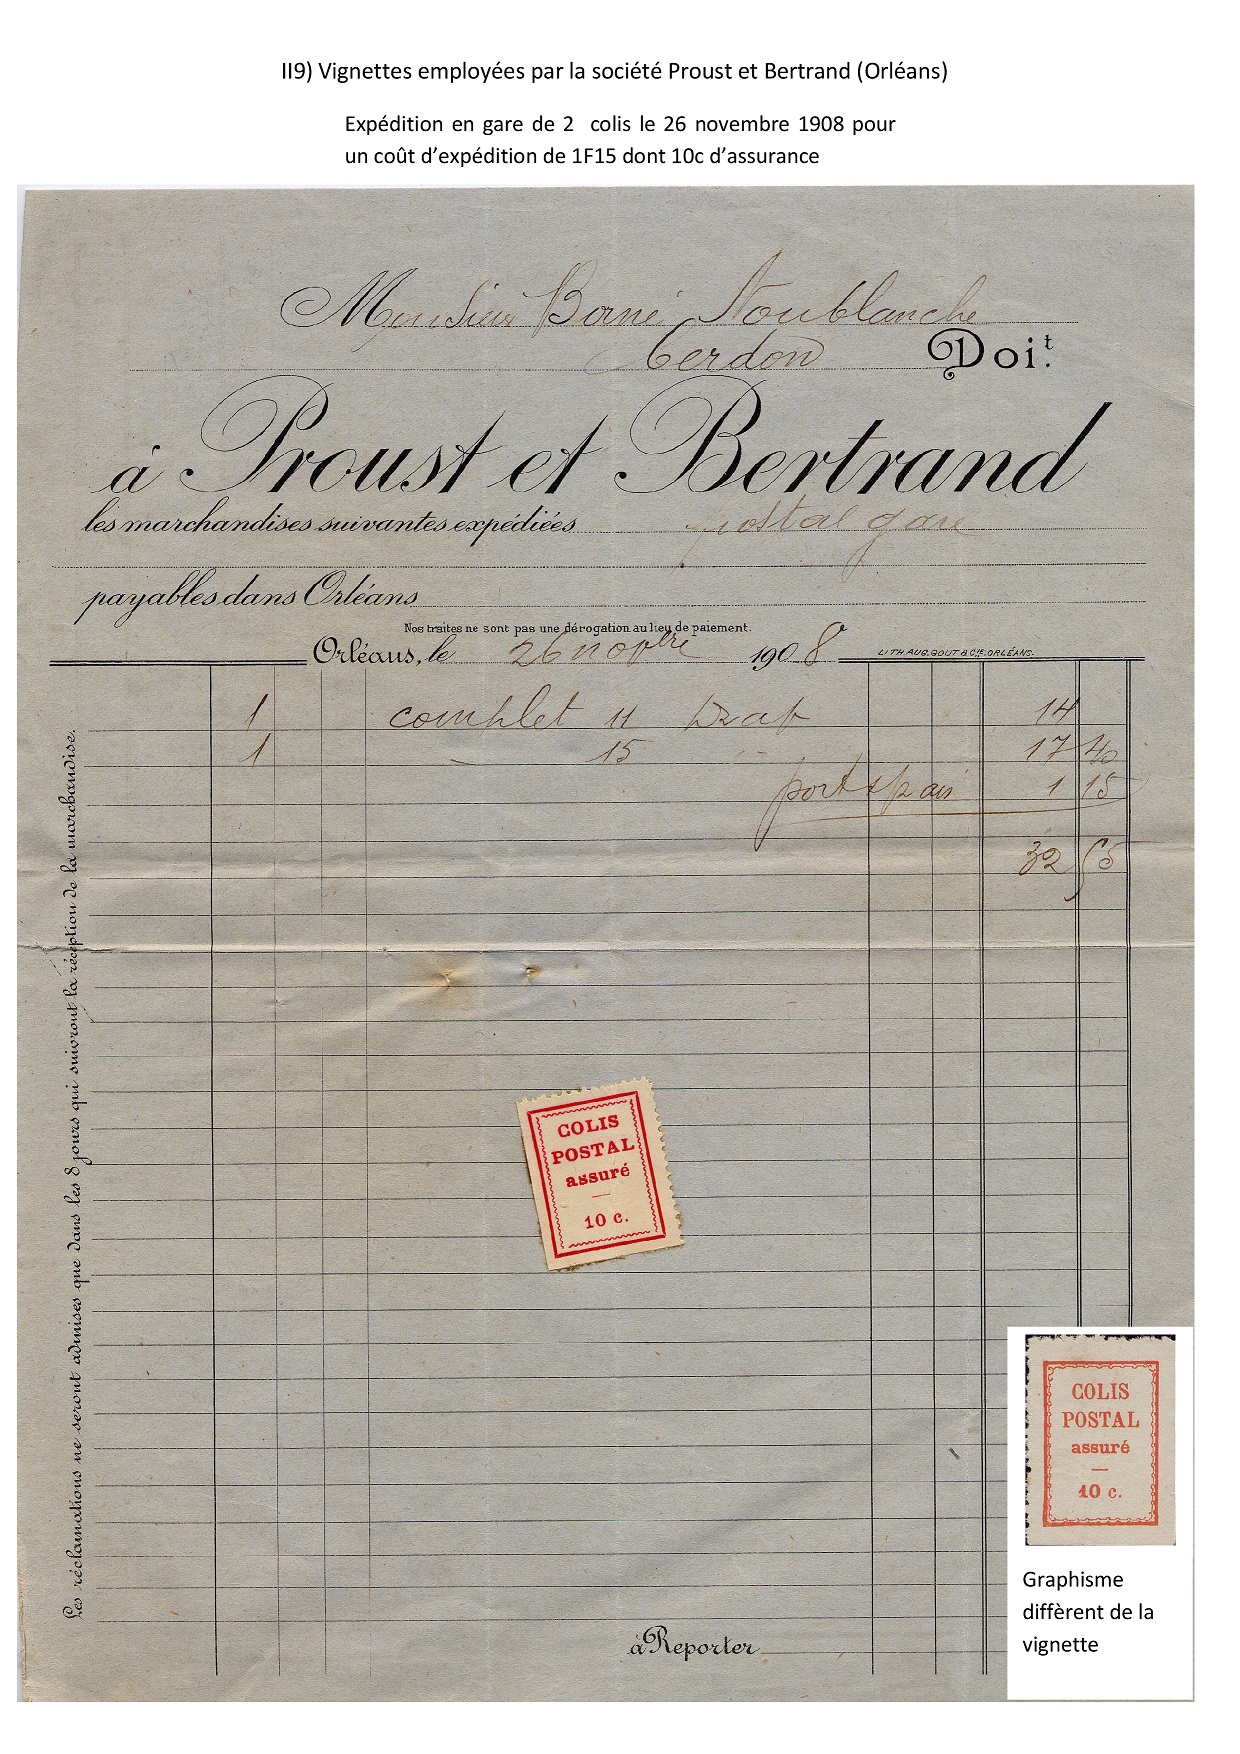 II9) Vignettes employées par la société Proust et Bertrand (Orléans)
Expédition en gare de 2 colis le 26 novembre 1908 pour
un coût d’expédition de 1F15 dont 10c d’assurance
Monsieur Borné Noublanche
Cerdon Doi.t
à Proust et Bertrand
les marchandises suivantes expédiées postal gare
payables dans Orléans
Nos traites ne sont pas une dérogation au lieu de paiement.
Orléans, le 26 novbre 1908
LITH. AUG. GOUT & Cie. ORLÉANS.
1 complet 11 Drap 14
1 15 17 40
port & 1 15
32 55
Les réclamations ne seront admises que dans les 8 jours qui suivront la réception de la marchandise.
COLIS
POSTAL
assuré
10 c.
COLIS
POSTAL
assuré
10 c.
Graphisme
diffèrent de la
vignette
à Reporter